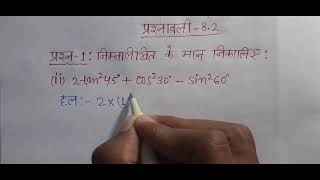 प्रश्नावली-8.2
प्रश्न-1: निम्नलिखित के मान निकालिए:
(ii) 2tan²45° + cos²30° - sin²60°
हल:- 2×(1